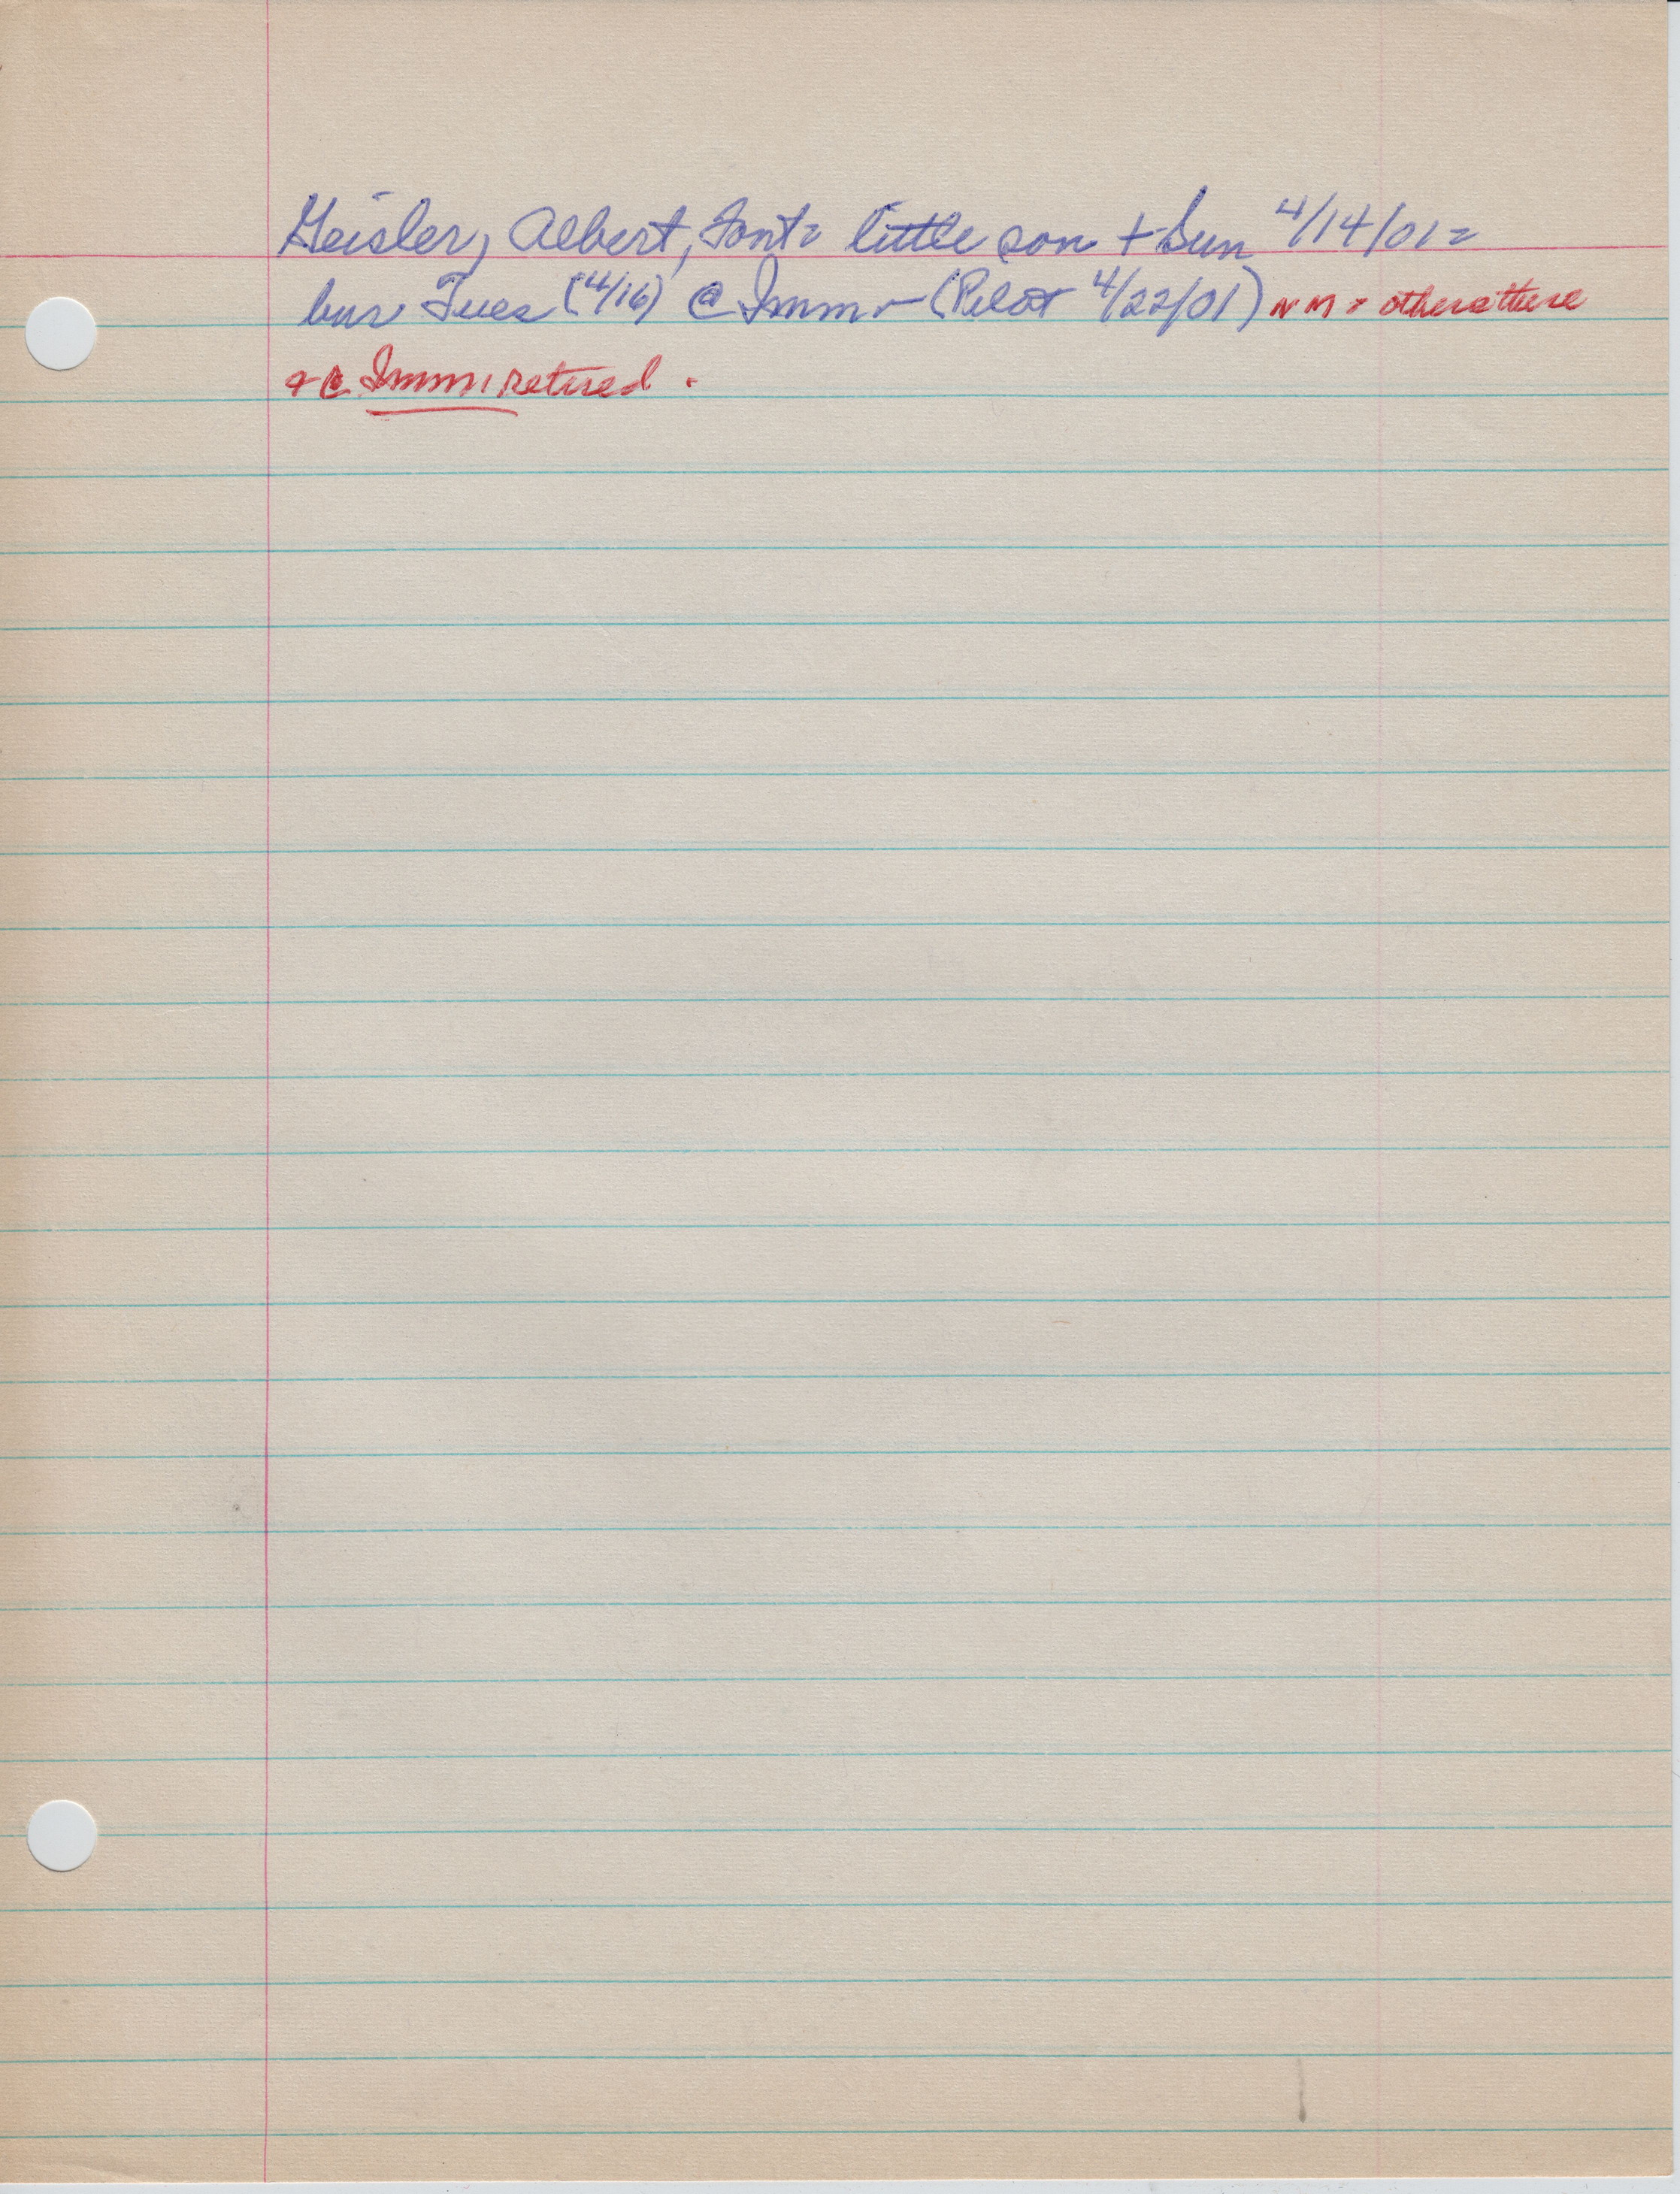 Geisler, Albert, Font= little son + Sun 4/14/01=
bur Tues (4/16) @ Imm - (Pilot 4/22/01) NM - others there
+ @ Imm, retired.